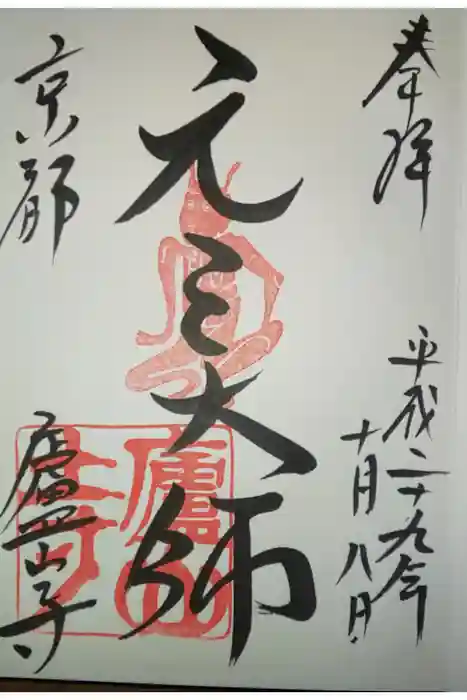 奉拝
平成二十九年
十月八日
元三大師
京都
廬山寺
廬山寺